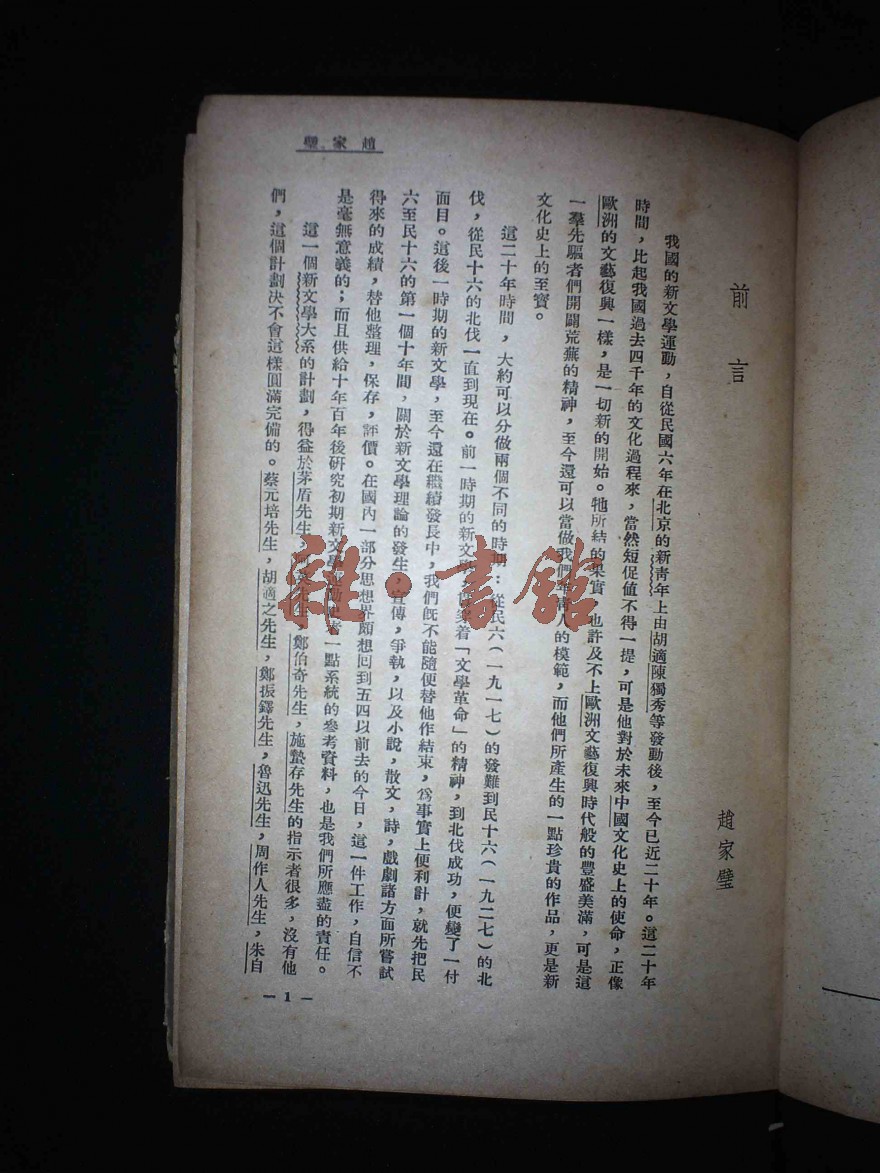 趙家璧
前言
趙家璧
我國的新文學運動，自從民國六年在北京的新青年上由胡適陳獨秀等發動後，至今已近二十年。這二十年
時間，比起我國過去四千年的文化過程來，當然短促值不得一提，可是他對於未來中國文化史上的使命，正像
歐洲的文藝復興一樣，是一切新的開始。牠所結的果實，也許及不上歐洲文藝復興時代般的豐盛美滿，可是這
一羣先驅者們開闢荒蕪的精神，至今還可以當做我們年青人的模範，而他們所產生的一點珍貴的作品，更是新
文化史上的至寶。
這二十年時間，大約可以分做兩個不同的時期：從民六（一九一七）的發難到民十六（一九二七）的北
伐，從民十六的北伐一直到現在。前一時期的新文學着「文學革命」的精神，到北伐成功，便變了一付
面目。這後一時期的新文學，至今還在繼續發長中，我們既不能隨便替他作結束，爲事實上便利計，就先把民
六至民十六的第一個十年間，關於新文學理論的發生，宣傳，爭執，以及小說，散文，詩，戲劇諸方面所嘗試
得來的成績，替他整理，保存，評價。在國內一部分思想界頗想囘到五四以前去的今日，這一件工作，自信不
是毫無意義的；而且供給十年百年後研究初期新文學運動史者一點系統的參考資料，也是我們所應盡的責任。
這一個新文學大系的計劃，得益於茅盾先生，先生，鄭伯奇先生，施蟄存先生的指示者很多，沒有他
們，這個計劃決不會這樣圓滿完備的。蔡元培先生，胡適之先生，鄭振鐸先生，魯迅先生，周作人先生，朱自
— 1 —
雜·書館